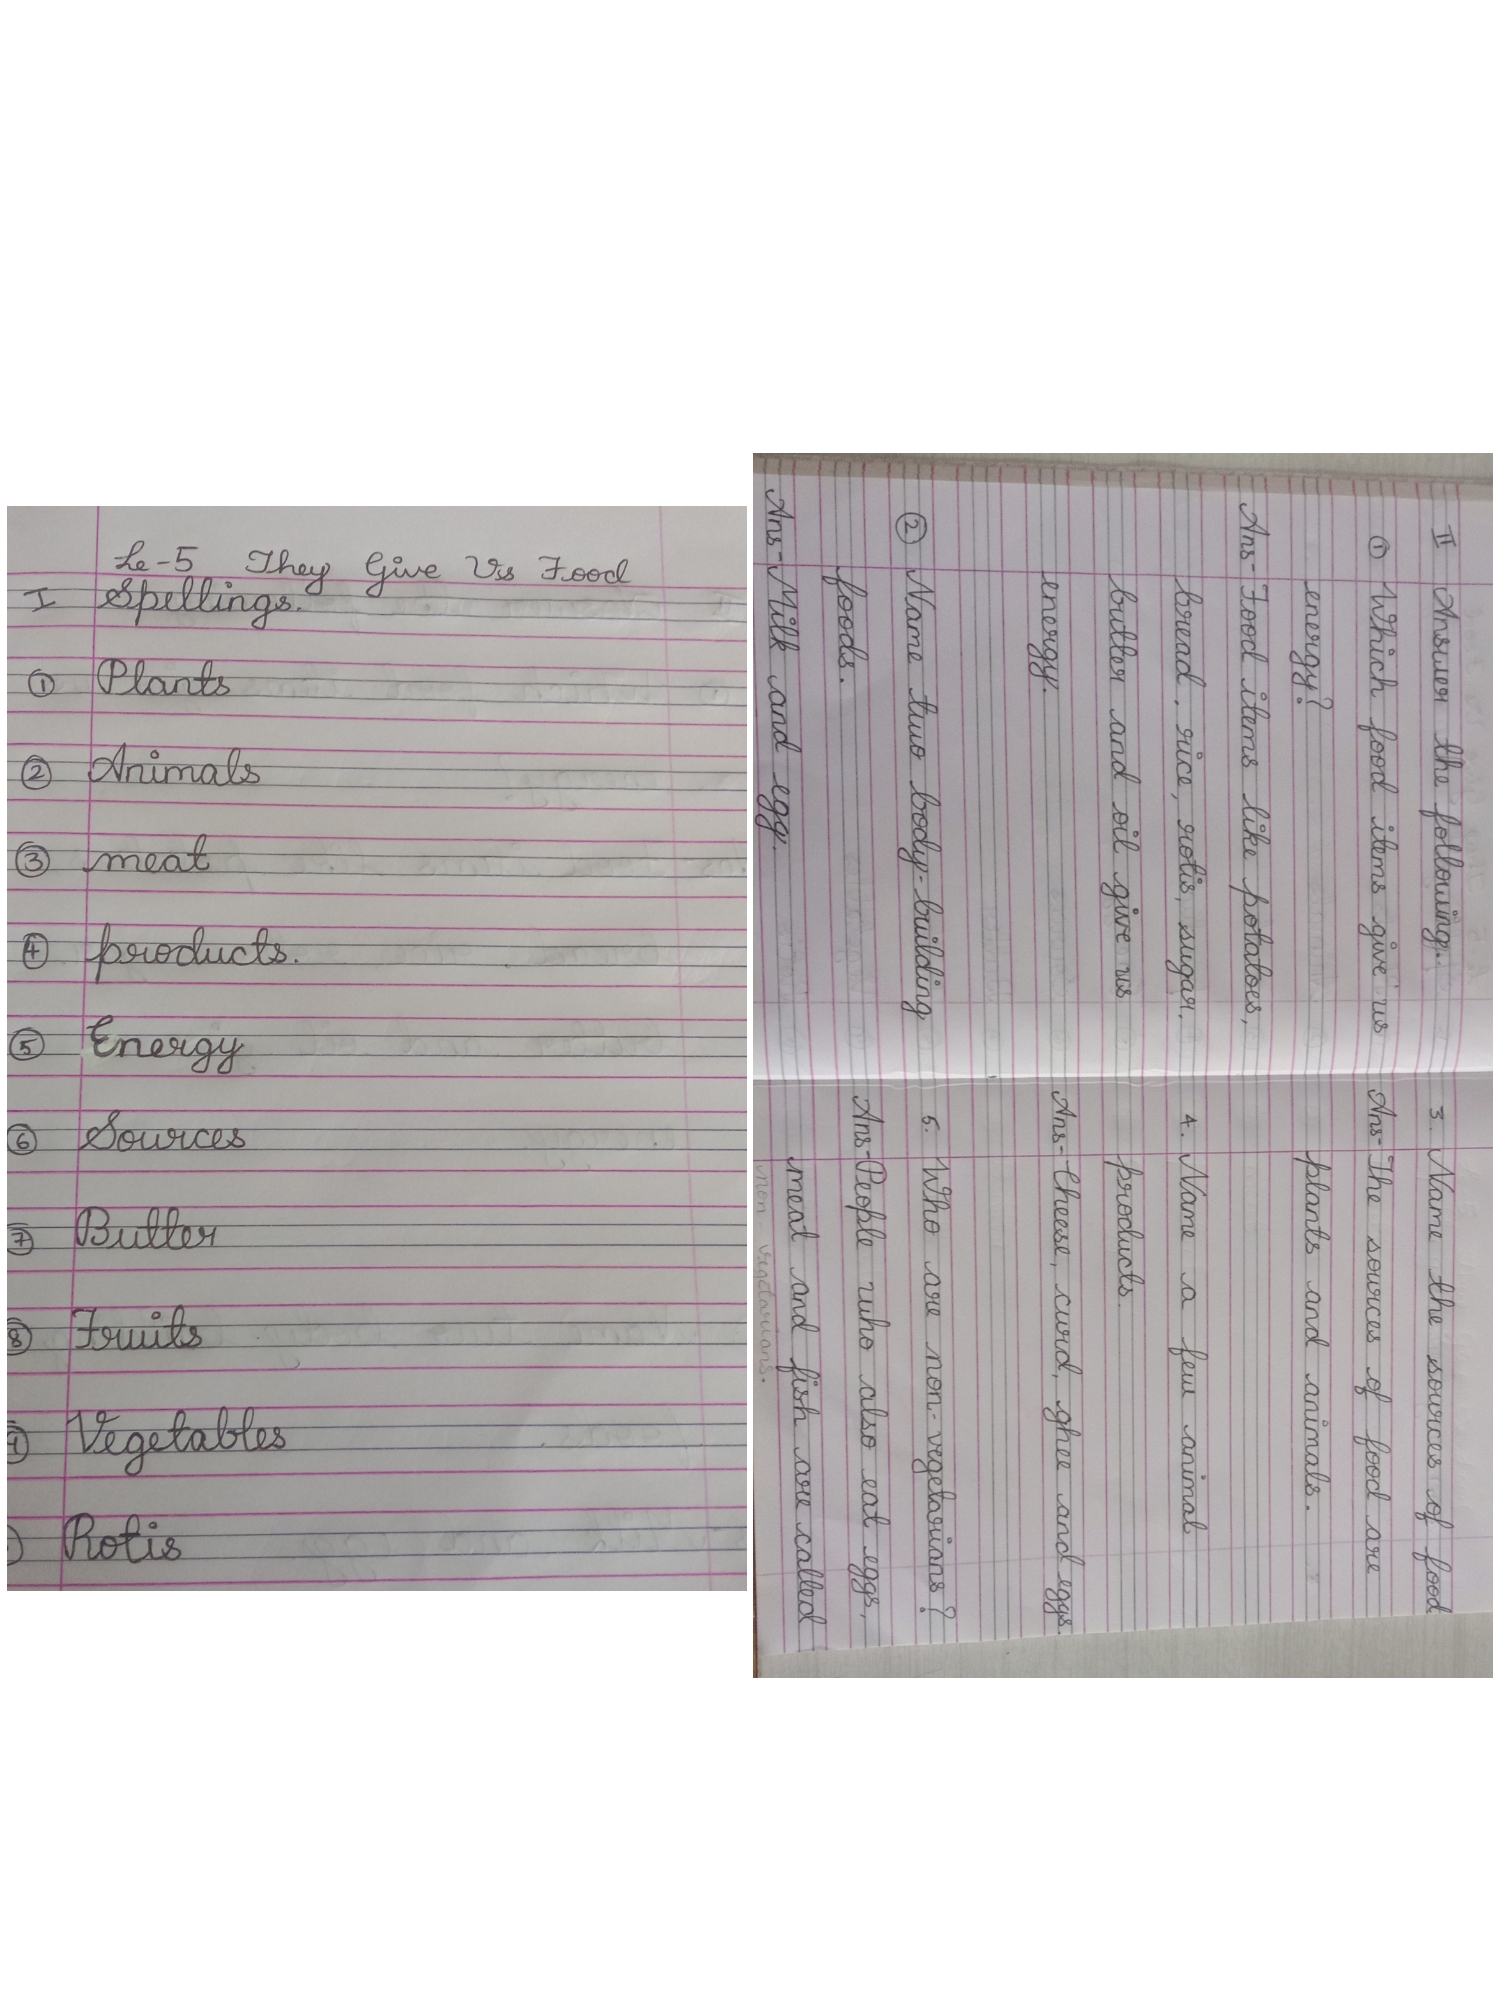 Le-5 They Give Us Food
I Spellings.
① Plants
② Animals
③ meat
④ products.
⑤ Energy
⑥ Sources
⑦ Butter
⑧ Fruits
Vegetables
Rotis
II Answer the following.
① Which food items give us
energy?
Ans- Food items like potatoes,
bread, rice, rotis, sugar,
butter and oil give us
energy.
② Name two body-building
foods.
Ans- Milk and egg.
3. Name the sources of food
Ans- The sources of food are
plants and animals.
4. Name a few animal
products.
Ans- Cheese, curd, ghee and eggs.
5. Who are non-vegetarians?
Ans- People who also eat eggs,
meat and fish are called
non-vegetarians.